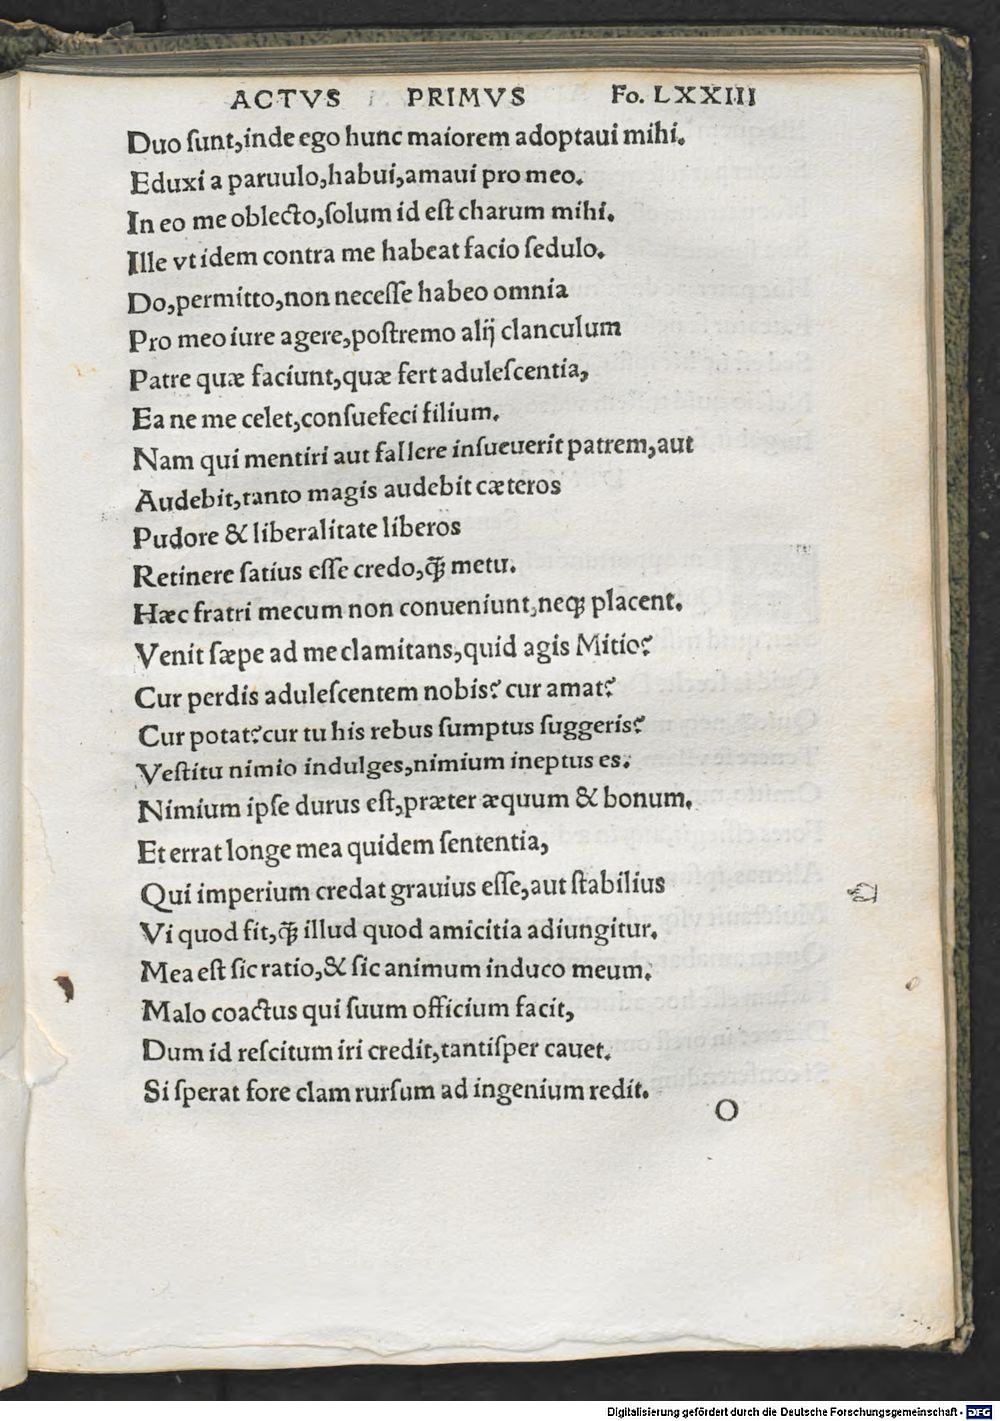 ACTVS PRIMVS Fo. LXXIII
Duo ſunt,inde ego hunc maiorem adoptaui mihi.
Eduxi a paruulo,habui,amaui pro meo.
In eo me oblecto,ſolum id eſt charum mihi.
Ille vt idem contra me habeat facio ſedulo.
Do,permitto,non neceſſe habeo omnia
Pro meo iure agere,poſtremo alij clanculum
Patre quæ faciunt,quæ fert aduleſcentia,
Ea ne me celet,conſuefeci filium.
Nam qui mentiri aut fallere inſueuerit patrem,aut
Audebit,tanto magis audebit cæteros
Pudore & liberalitate liberos
Retinere ſatius eſſe credo,ꝙ̃ metu.
Hæc fratri mecum non conueniunt,neqꝫ placent.
Venit ſæpe ad me clamitans,quid agis Mitio?
Cur perdis aduleſcentem nobis? cur amat?
Cur potat?cur tu his rebus ſumptus ſuggeris?
Veſtitu nimio indulges,nimium ineptus es.
Nimium ipſe durus eſt,præter æquum & bonum.
Et errat longe mea quidem ſententia,
Qui imperium credat grauius eſſe,aut ſtabilius
Vi quod fit,ꝙ̃ illud quod amicitia adiungitur.
Mea eſt ſic ratio,& ſic animum induco meum.
Malo coactus qui ſuum officium facit,
Dum id reſcitum iri credit,tantiſper cauet.
Si ſperat fore clam rurſum ad ingenium redit.
O
Digitalisierung gefördert durch die Deutsche Forschungsgemeinschaft - DFG